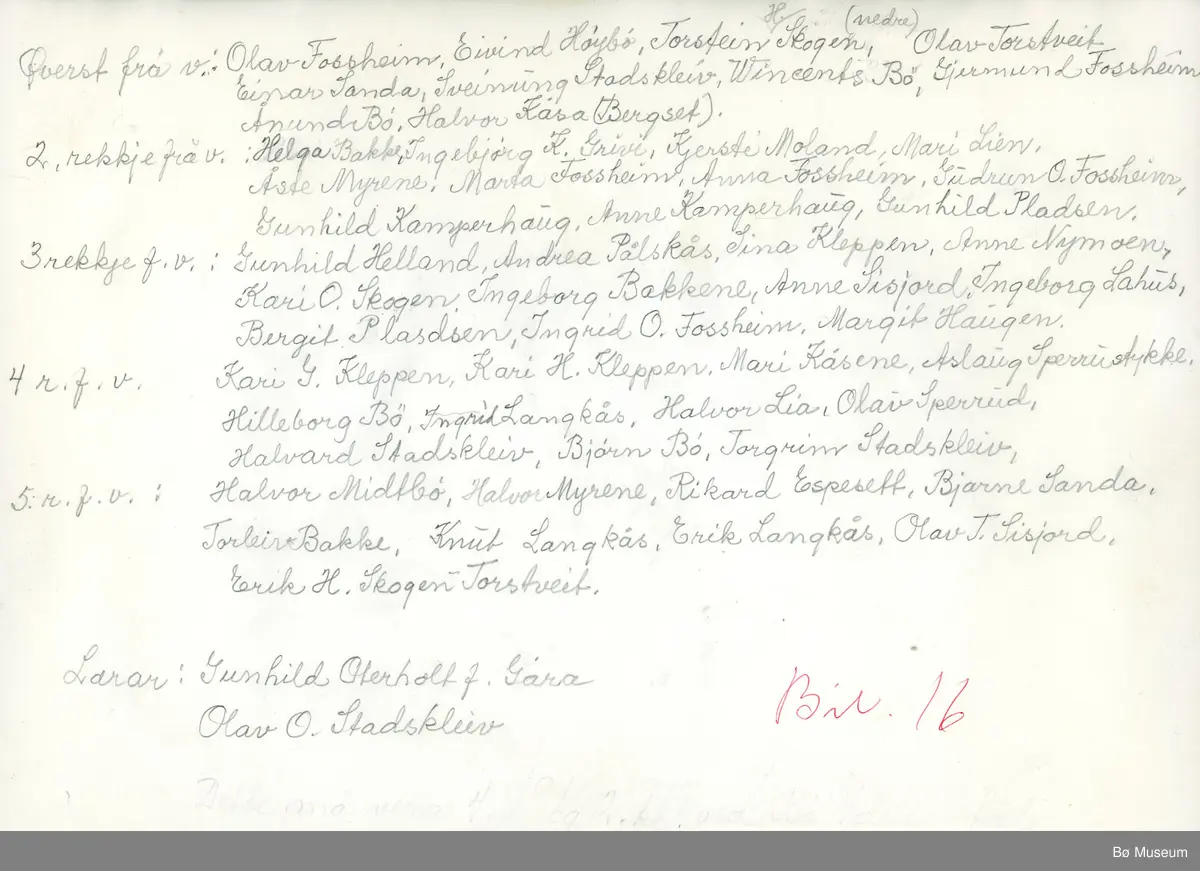 H. (nedre)
Øverst frå v.: Olav Fossheim, Eivind Höybö, Torstein Skogen, Olav Torstveit
Einar Sanda, Sveinung Stadskleiv, Wincents Bö, Gjermund Fossheim
Ånund Bö, Halvor Kåsa (Bergset).
2. rekkje frå v. : Helga Bakke, Ingebjörg K. Grivi, Kjersti Moland, Mari Lien,
Åste Myrene, Marta Fossheim, Anna Fossheim, Gudrun O. Fossheim,
Gunhild Kamperhaug, Anne Kamperhaug, Gunhild Pladsen.
3 rekkje f. v. : Gunhild Helland, Andrea Pålskås, Sina Kleppen, Anne Nymoen,
Kari O. Skogen, Ingeborg Bakkene, Anne Sisjord, Ingeborg Lahus,
Bergit Plasdsen, Ingrid O. Fossheim, Margit Haugen.
4 r. f. v. Kari G. Kleppen, Kari H. Kleppen, Mari Kåsene, Aslaug Sperrustykke.
Hilleborg Bö, Ingrid Langkås, Halvor Lia, Olav Sperrud,
Halvard Stadskleiv, Björn Bö, Torgrim Stadskleiv,
5. r. f. v. : Halvor Midtbö, Halvor Myrene, Rikard Espesett, Bjarne Sanda,
Torleiv Bakke, Knut Langkås, Erik Langkås, Olav T. Sisjord,
Erik H. Skogen Torstveit.
Lærar : Gunhild Oterholt f. Gåra
Olav O. Stadskleiv
Bil. 16
må vera 4. og 2.
Bø Museum